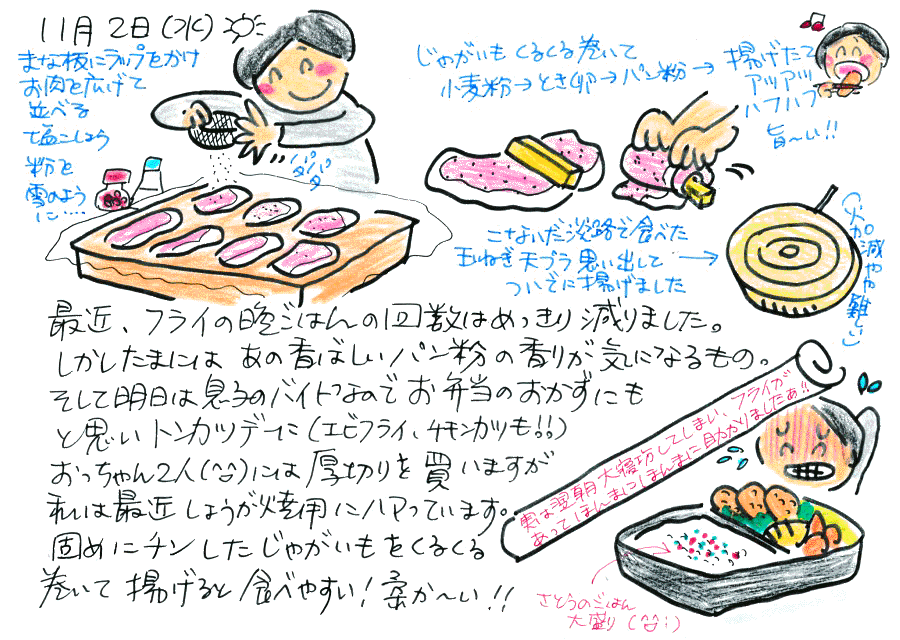 11月2日(水)
まな板にラップをかけ
お肉を広げて
並べる
塩こしょう
粉を
雪のよう
に‥‥
パタパタ
じゃがいも くるくる巻いて
小麦粉→とき卵→パン粉→
揚げたて
アツアツ
ハフハフ
旨〜い!!
こないだ淡路で食べた
玉ねぎ天プラ思い出して
ついでに揚げました
(火加減やや難しい)
最近、フライの晩ごはんの回数はめっきり減りました。
しかしたまには あの香ばしいパン粉の香りが気になるもの。
そして明日は息子のバイトなのでお弁当のおかずにも
と思いトンカツデーに(エビフライ、チキンカツも!!)
おっちゃん2人(^^)には厚切りを買いますが
私は最近しょうが焼用にハマっています。
固めにチンしたじゃがいもをくるくる
巻いて揚げると食べやすい!柔か〜い!!
実は翌朝大寝坊してしまい、フライが
あってほんまにほんまに助かりましたぁ!!
さとうのごはん
大盛り(^^;)